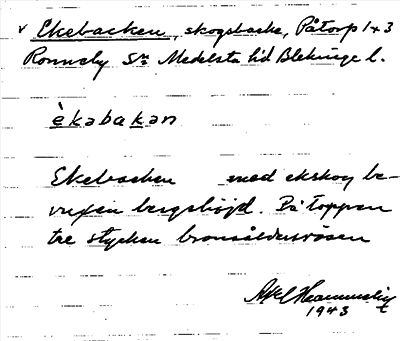 v Ekebacken, skogsbacke, Påtorp 1+3
Ronneby sn Medelsta hd Blekinge l.
èkabakan
Ekebacken med ekskog be-
vuxen bergshöjd. På toppen
tre stycken bronsåldersrösen
Axel
1943